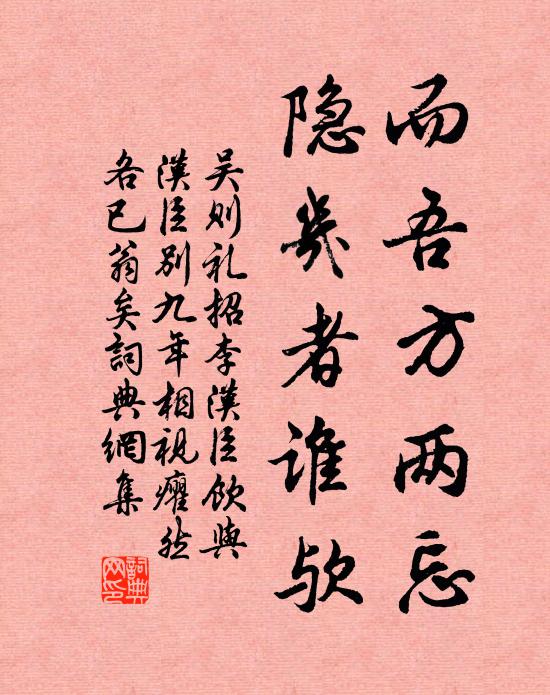 而吾方两忘
隐几者谁欤
吴则礼招李汉臣饮与
汉臣别九年相视癯然
各已翁矣词典网集
词典网印